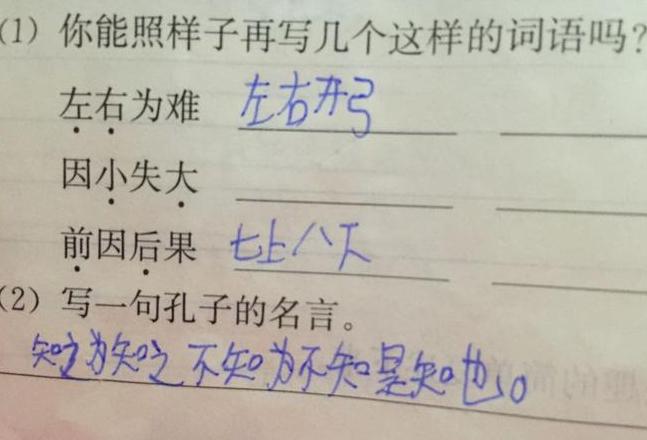 (1) 你能照样子再写几个这样的词语吗?
左右为难 左右开弓
因小失大
前因后果 七上八下
(2) 写一句孔子的名言。
知之为知之 不知为不知 是知也。